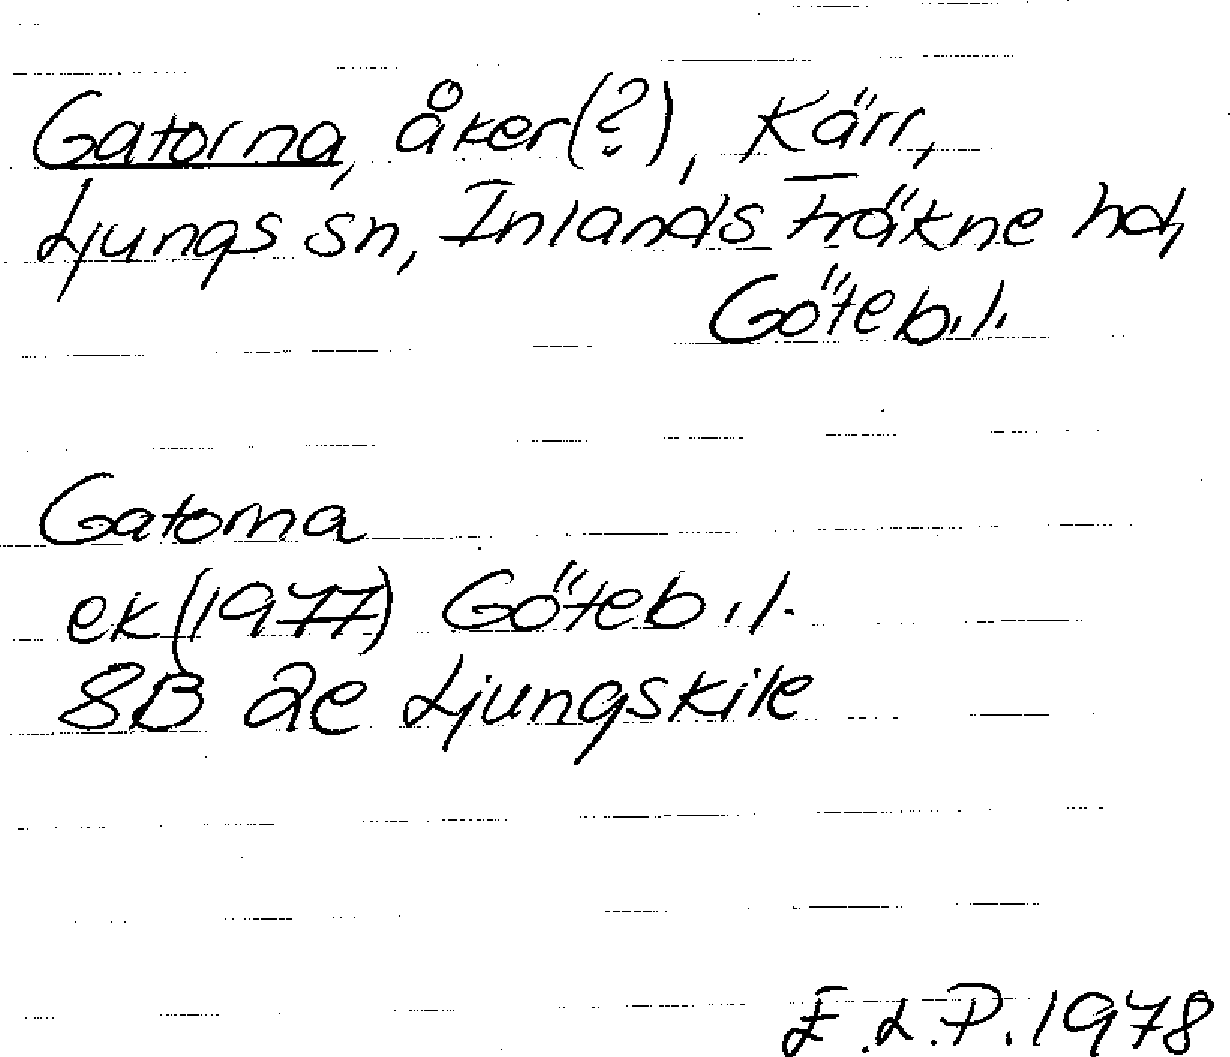 Gatorna, åker(?), Kärr,
Ljungs sn, Inlands Fräkne hd,
Göteb.l.
Gatorna
ek(1977) Göteb.l.
8B 2e Ljungskile
E.L.P. 1978